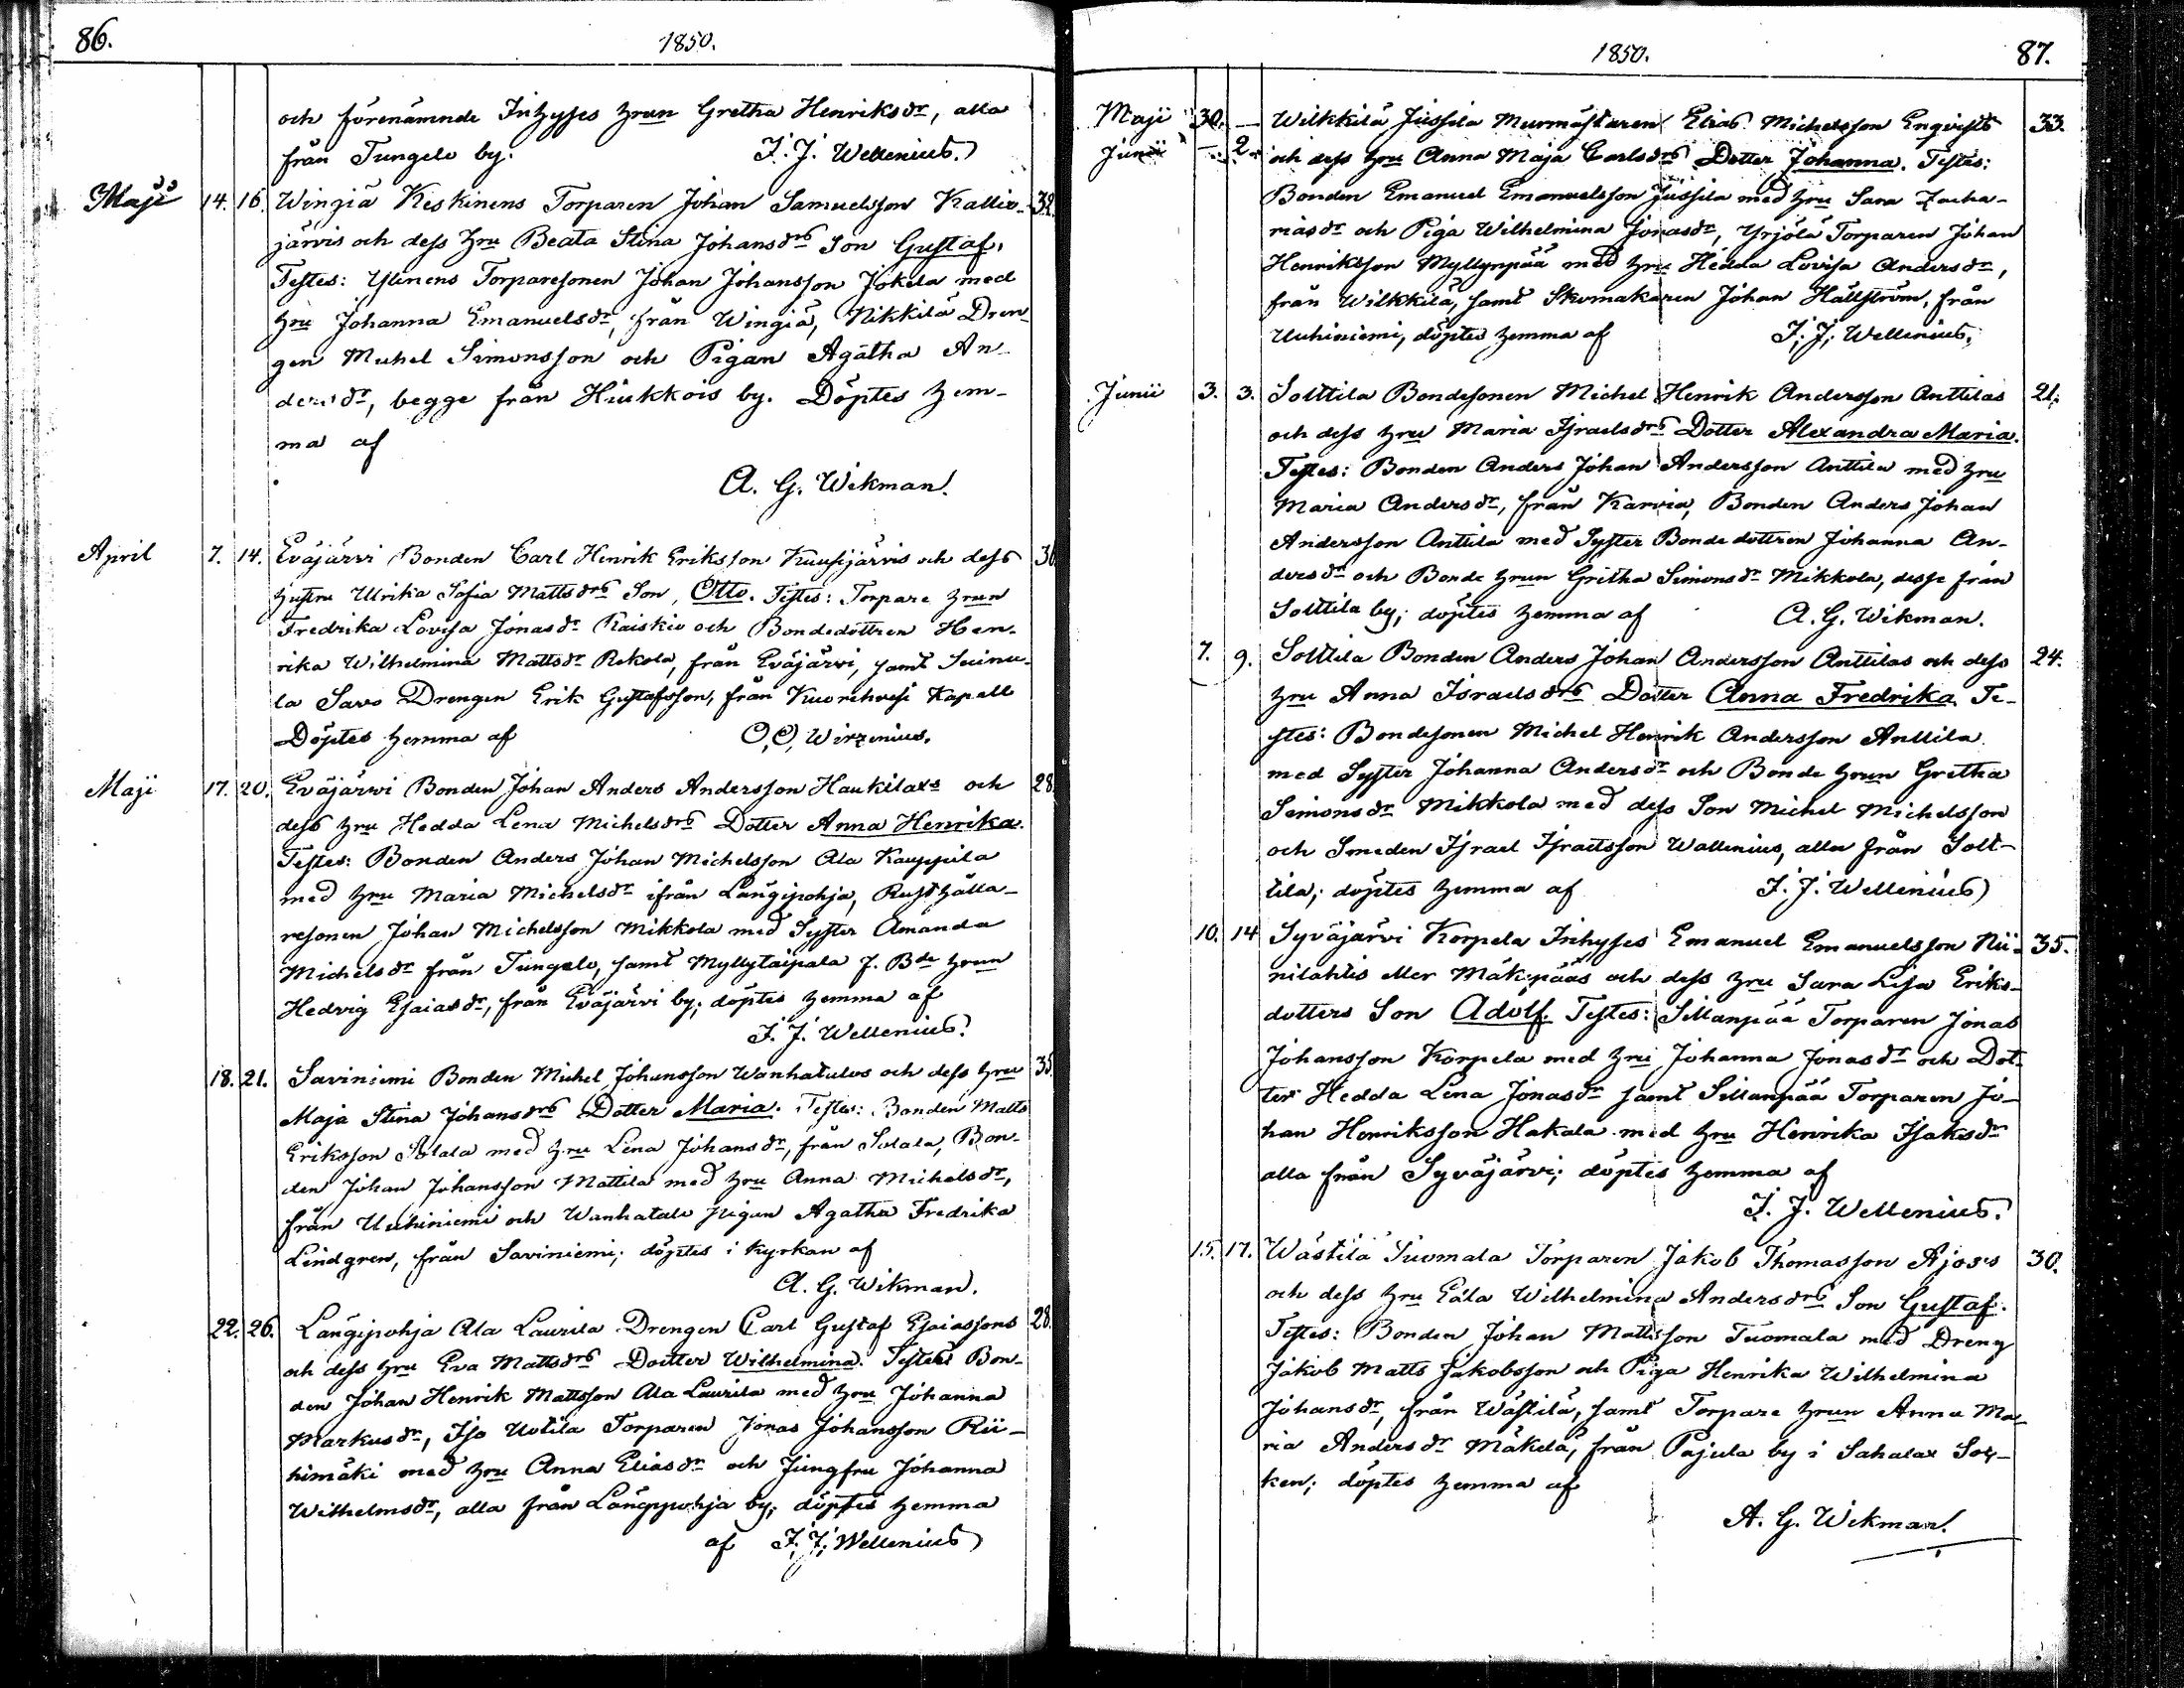 86.
1850.
och förenämnde Inhyses hrun Gretha Henriksdr, alla
från Tungelo by. F. J. Wellenius.
Maji 14. 16. Wingiä Keskinens Torparen Johan Samuelsson Kallio- 32.
järvis och dess hru Beata Stina Johansdrs Son Gustaf.
Testes: Ylinens Torparesonen Johan Johansson Jokela med
hru Johanna Emanuelsdr, från Wingiä, Nikkilä Dren-
gen Michel Simonsson och Pigan Agatha An-
dersdr, begge från Hiukkois by. Döptes hem-
ma af
A. G. Wikman.
April 7. 14. Eväjärvi Bonden Carl Henrik Eriksson Kuusijärvis och dess 36
hustru Ulrika Sofia Mattsdrs Son, Otto. Testes: Torpare hrun
Fredrika Lovisa Jonasdr Raiskio och Bondedottren Hen-
rika Wilhelmina Mattsdr Rekola, från Eväjärvi, samt Suinu-
la Savo Drengen Erik Gustafsson, från Kuorehvesi Kapell
Döptes hemma af O. O. Wirzenius.
Maji 17. 20. Eväjärvi Bonden Johan Anders Andersson Haukilaxs och 28
dess hru Hedda Lena Michelsdrs Dotter Anna Henrika.
Testes: Bonden Anders Johan Michelsson Ala Kauppila
med hru Maria Michelsdr ifrån Längipohja, Rusthålla-
resonen Johan Michelsson Mikkola med Syster Amanda
Michelsdr från Tungelo, samt Myllytaipala f. Bde hrun
Hedvig Esaiasdr, från Eväjärvi by; döptes hemma af
F. J. Wellenius.
18. 21. Saviniemi Bonden Michel Johansson Wanhatalos och dess hru 35
Maja Stina Johansdrs Dotter Maria. Testes: Bonden Matts
Eriksson Solala med hru Lena Johansdr, från Solala, Bon-
den Johan Johansson Mattila med hru Anna Michelsdr,
från Uuhiniemi och Wanhatalo pigan Agatha Fredrika
Lindgren, från Saviniemi; döptes i kyrkan af
A. G. Wikman.
22. 26. Längipohja Ala Laurila Drengen Carl Gustaf Esaiassons 28.
och dess hru Eva Mattsdrs Dotter Wilhelmina. Testes Bon-
den Johan Henrik Mattsson Ala Laurila med hru Johanna
Markusdr, Iso Uotila Torparen Jonas Johansson Rii-
himäki med hru Anna Eliasdr och Jungfru Johanna
Wilhelmsdr, alla från Längipohja by; döptes hemma
af F. J. Wellenius
1850.
87.
Maji 30. — Wilkkilä Jussila Murmästaren Elias Michelsson Enqvists 33.
Junii — 2. och dess hru Anna Maja Carlsdrs Dotter Johanna. Testes:
Bonden Emanuel Emanuelsson Jussila med hru Sara Zacha-
riasdr och Piga Wilhelmina Jonasdr, Yrjölä Torparen Johan
Henriksson Myllynpää med hru Hedda Lovisa Andersdr,
från Wilkkilä, samt Skomakaren Johan Hällström, från
Uuhiniemi, döptes hemma af F. J. Wellenius.
Junii 3. 3. Solttila Bondesonen Michel Henrik Andersson Anttilas 21.
och dess hru Maria Israelsdrs Dotter Alexandra Maria.
Testes: Bonden Anders Johan Andersson Anttila med hru
Maria Andersdr, från Karvia, Bonden Anders Johan
Andersson Anttila med Syster Bondedottren Johanna An-
dersdr och Bonde hrun Gritha Simonsdr Mikkola, desse från
Solttila by; döptes hemma af A. G. Wikman.
7. 9. Solttila Bonden Anders Johan Andersson Anttilas och dess 24.
hru Anna Israelsdrs Dotter Anna Fredrika. Te-
stes: Bondesonen Michel Henrik Andersson Anttila
med Syster Johanna Andersdr och Bonde hrun Gretha
Simonsdr Mikkola med dess Son Michel Michelsson
och Smeden Israel Israelsson Wallenius, alla från Solt-
tila; döptes hemma af F. J. Wellenius
10. 14 Syväjärvi Korpela Inhyses Emanuel Emanuelsson Nii- 35.
nilahtis eller Mäkipääs och dess hru Sara Lisa Eriks-
dotters Son Adolf. Testes: Sillanpää Torparen Jonas
Johansson Korpela med hru Johanna Jonasdr och Dot-
ter Hedda Lena Jonasdr samt Sillanpää Torparen Jo-
han Henriksson Hakala med hru Henrika Isaksdr
alla från Syväjärvi; döptes hemma af
F. J. Wellenius.
15. 17. Wästilä Tuomala Torparen Jakob Thomasson Ajos's 30.
och dess hru Eäla Wilhelmina Andersdrs Son Gustaf.
Testes: Bonden Johan Mattsson Tuomala med Dreng
Jakob Matts Jakobsson och Piga Henrika Wilhelmina
Johansdr, från Wästilä, samt Torpare hrun Anna Ma-
ria Andersdr Mäkelä, från Pajula by i Sahalax Soc-
ken; döptes hemma af
A. G. Wikman.